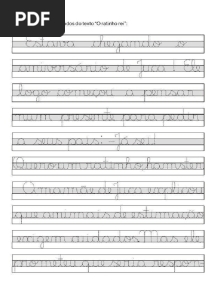 PDF
dos do texto "O ratinho rei":
Estava chegando o
aniversário de Juca! Ele
logo começou a pensar
num presente para pedir
a seus pais: - Já sei!
Quero um ratinho hamster
A mamãe de Juca explicou
que animais de estimação
exigem cuidados. Mas ele
prometeu que seria respon-